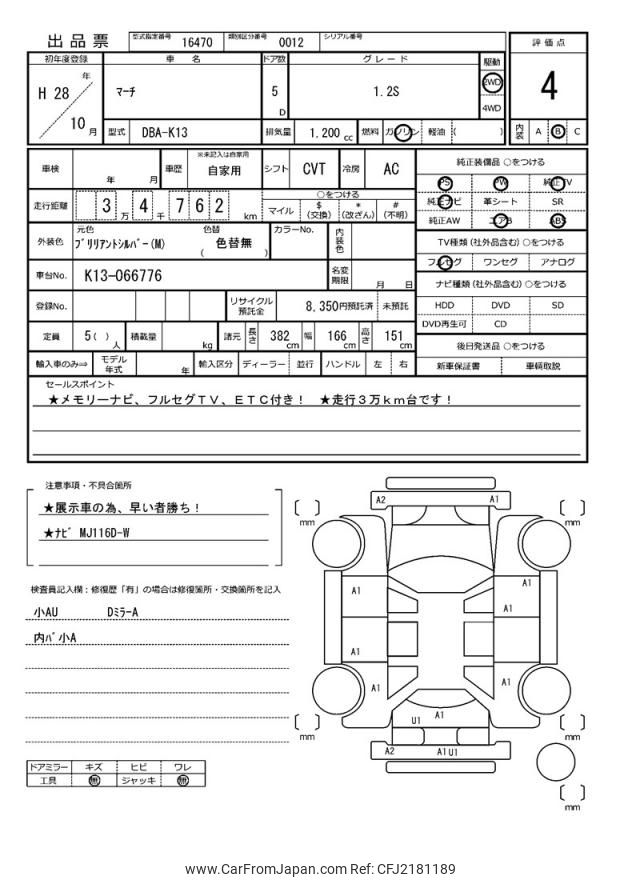 出品票 型式指定番号 16470 類別区分番号 0012 シリアル番号
初年度登録 車 名 ドア数 グレード 駆動 評価点
H 28 年 10 月 マーチ 5 D 1.2S 2WD 4WD 4
型式 DBA-K13 排気量 1.200 cc 燃料 ガソリン 軽油 ( ) 内装 A B C
車検 年 月 車歴 ※未記入は自家用 自家用 シフト CVT 冷房 AC 純正装備品 ○をつける
PS PW 純正TV
走行距離 3 万 4 千 7 6 2 km ○をつける
マイル $ (交換) * (改ざん) # (不明) 純正ナビ 革シート SR
純正AW エアB ABS
外装色 元色 ブリリアントシルバー(M) 色替 色替無 ( ) カラーNo. 内装色
TV種類 (社外品含む) ○をつける
フルセグ ワンセグ アナログ
車台No. K13-066776 名変期限 月 日
ナビ種類 (社外品含む) ○をつける
登録No. リサイクル預託金 8,350円預託済 未預託 HDD DVD SD
DVD再生可 CD
定員 5( ) 人 積載量 kg 諸元 長さ 382 cm 幅 166 cm 高さ 151 cm
後日発送品 ○をつける
輸入車のみ⇒ モデル年式 年 輸入区分 ディーラー 並行 ハンドル 左 右 新車保証書 車輌取説
セールスポイント
★メモリーナビ、フルセグTV、ETC付き! ★走行3万km台です!
注意事項・不具合箇所
★展示車の為、早い者勝ち!
★ナビ MJ116D-W
検査員記入欄:修復歴「有」の場合は修復箇所・交換箇所を記入
小AU DミラーA
内バ小A
ドアミラー キズ ヒビ ワレ
工具 無 ジャッキ 無
A2 A1
mm mm
A1 A1
A1
A1
A1 A1
U1 A1
mm mm
A2 A1 U1
mm
www.CarFromJapan.com Ref: CFJ2181189